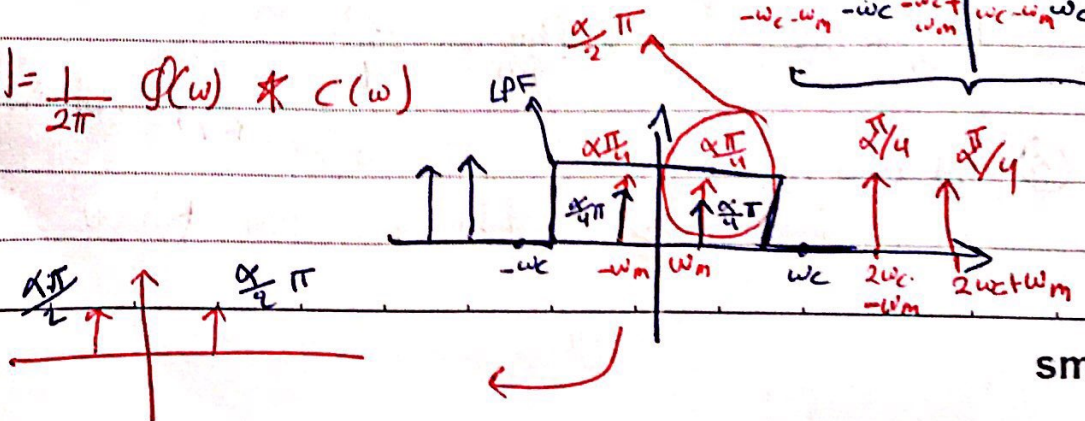 -ωc-ωm -ωc -ωc+ωm ωc-ωm ωc
α/2 π
]= 1/2π φ(ω) * C(ω)
LPF
απ/4 απ/4 απ/4 απ/4
α/4 π α/4 π
-ωc -ωm ωm ωc 2ωc-ωm 2ωc+ωm
απ/2 α/2 π
sm